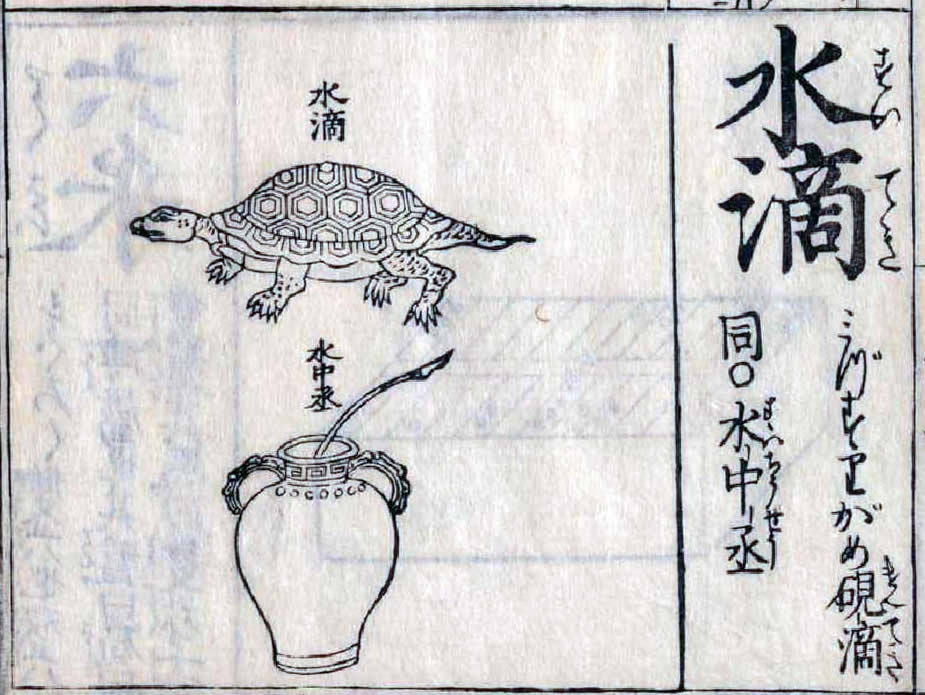 水滴
すいてき
がめ硯滴
けんてき
同〇水中丞
すいちうせう
水滴
水中丞